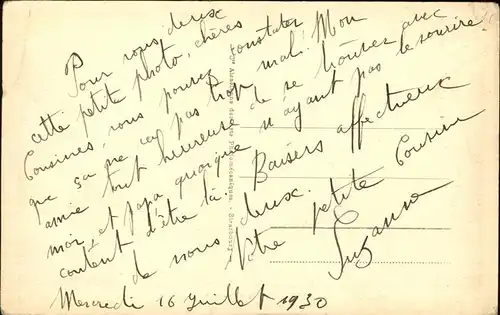 Pour vous deux
cette petite photo, chères
Cousines, vous pouvez constater
que ça ne va pas trop mal! Mon
amie tout heureuse de se trouver avec
moi et papa quoique n'ayant pas le sourire
content d'être là. Baisers affectueux
de nous deux.
Votre petite Cousine
Suzanne
Mercredi 16 Juillet 1930
Strasbourg